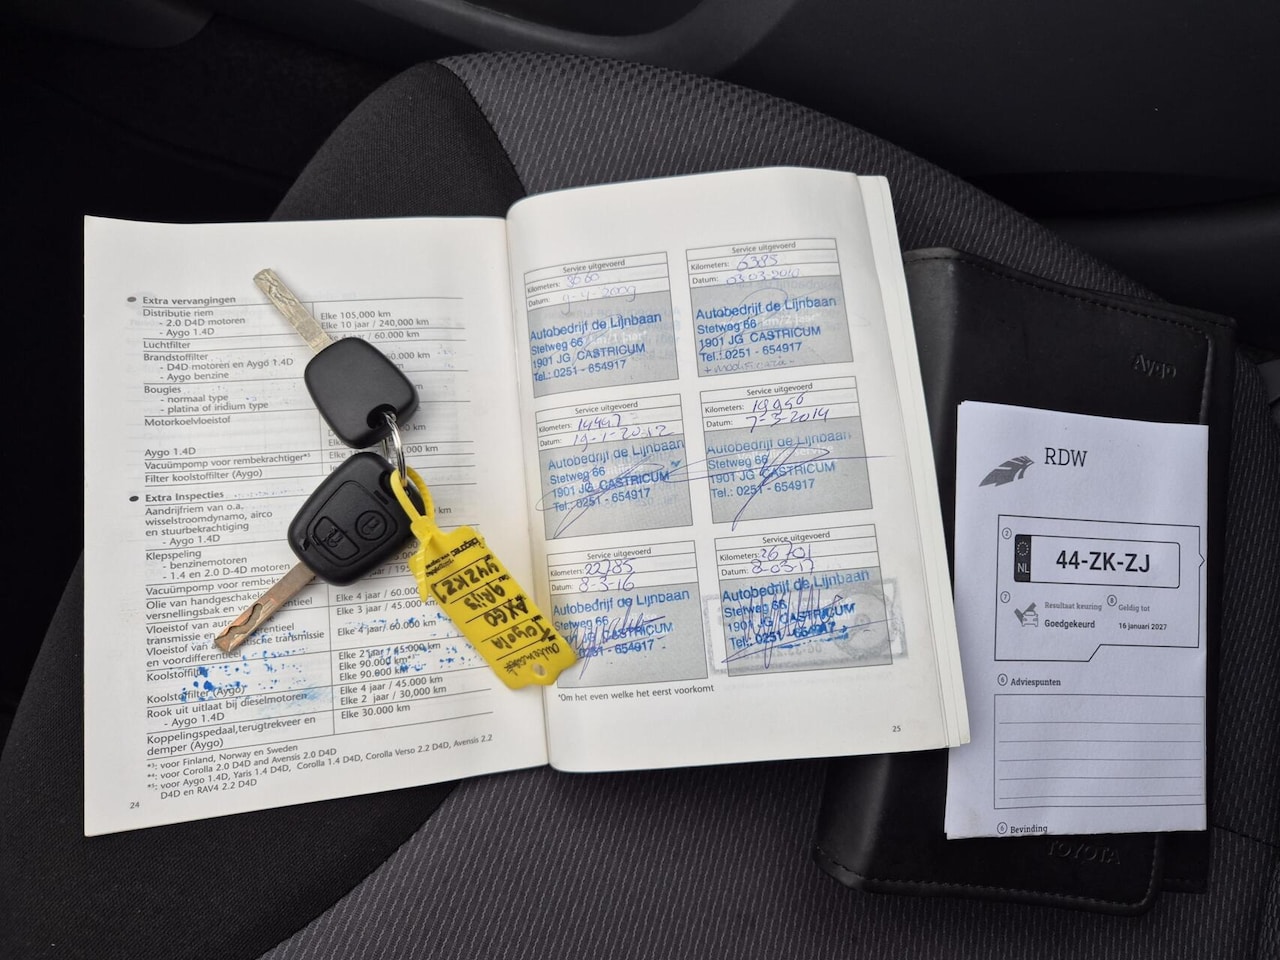 Extra vervangingen
Distributie riem
- 2.0 D4D motoren
Elke 105,000 km
- Aygo 1.4D
Elke 10 jaar / 240,000 km
Luchtfilter
4 jaar / 60.000 km
Brandstoffilter
- D4D motoren en Aygo 1.4D
- Aygo benzine
Bougies
- normaal type
- platina of iridium type
Motorkoelvloeistof
Aygo 1.4D
Vacuümpomp voor rembekrachtiger
Filter koolstoffilter (Aygo)
Extra Inspecties
Aandrijfriem van o.a.
wisselstroomdynamo, airco
en stuurbekrachtiging
- Aygo 1.4D
Klepspeling
- benzinemotoren
- 1.4 en 2.0 D-4D motoren
Vacuümpomp voor rembek
Olie van handgeschakel
versnellingsbak en vo
Elke 4 jaar / 60.000
Elke 3 jaar / 45.000 km
Vloeistof van auto
transmissie en
Elke 4 jaar/ 60.000 km
Vloeistof van
en voordifferentieel
Elke 2 jaar / 45.000 km
Koolstoffilter
Elke 90.000 km
Koolstoffilter (Aygo)
Elke 90.000 km
Rook uit uitlaat bij dieselmotoren
Elke 4 jaar / 45.000 km
- Aygo 1.4D
Elke 2 jaar / 30,000 km
Koppelingspedaal,terugtrekveer en
demper (Aygo)
Elke 30.000 km
*³: voor Finland, Norway en Sweden
*⁴: voor Corolla 2.0 D4D and Avensis 2.0 D4D
*⁵: voor Aygo 1.4D, Yaris 1.4D D4D, Corolla 1.4 D4D, Corolla Verso 2.2 D4D, Avensis 2.2
D4D en RAV4 2.2 D4D
24
44ZKZJ
Grijs
AYGO
Toyota
Service uitgevoerd
Kilometers:
Datum: 9-4-2009
Autobedrijf de Lijnbaan
Stetweg 66
1901 JG CASTRICUM
Tel.: 0251 - 654917
Service uitgevoerd
Kilometers: 6385
Datum: 03-03-2010
Autobedrijf de Lijnbaan
Stetweg 66
1901 JG CASTRICUM
Tel.: 0251 - 654917
Service uitgevoerd
Kilometers: 14997
Datum: 19-1-2012
Autobedrijf de Lijnbaan
Stetweg 66
1901 JG CASTRICUM
Tel.: 0251 - 654917
Service uitgevoerd
Kilometers: 19956
Datum: 7-3-2014
Autobedrijf de Lijnbaan
Stetweg 66
1901 JG CASTRICUM
Tel.: 0251 - 654917
Service uitgevoerd
Kilometers: 22785
Datum: 8-3-16
Autobedrijf de Lijnbaan
Stetweg 66
1901 JG CASTRICUM
0251 - 654917
Service uitgevoerd
Kilometers: 26701
Datum: 8-03-17
Autobedrijf de Lijnbaan
Stetweg 66
1901 JG CASTRICUM
Tel.: 0251 - 654917
*Om het even welke het eerst voorkomt
25
Aygo
RDW
2
NL
44-ZK-ZJ
7
Resultaat keuring
Goedgekeurd
8
Geldig tot
16 januari 2027
6 Adviespunten
6 Bevinding
TOYOTA